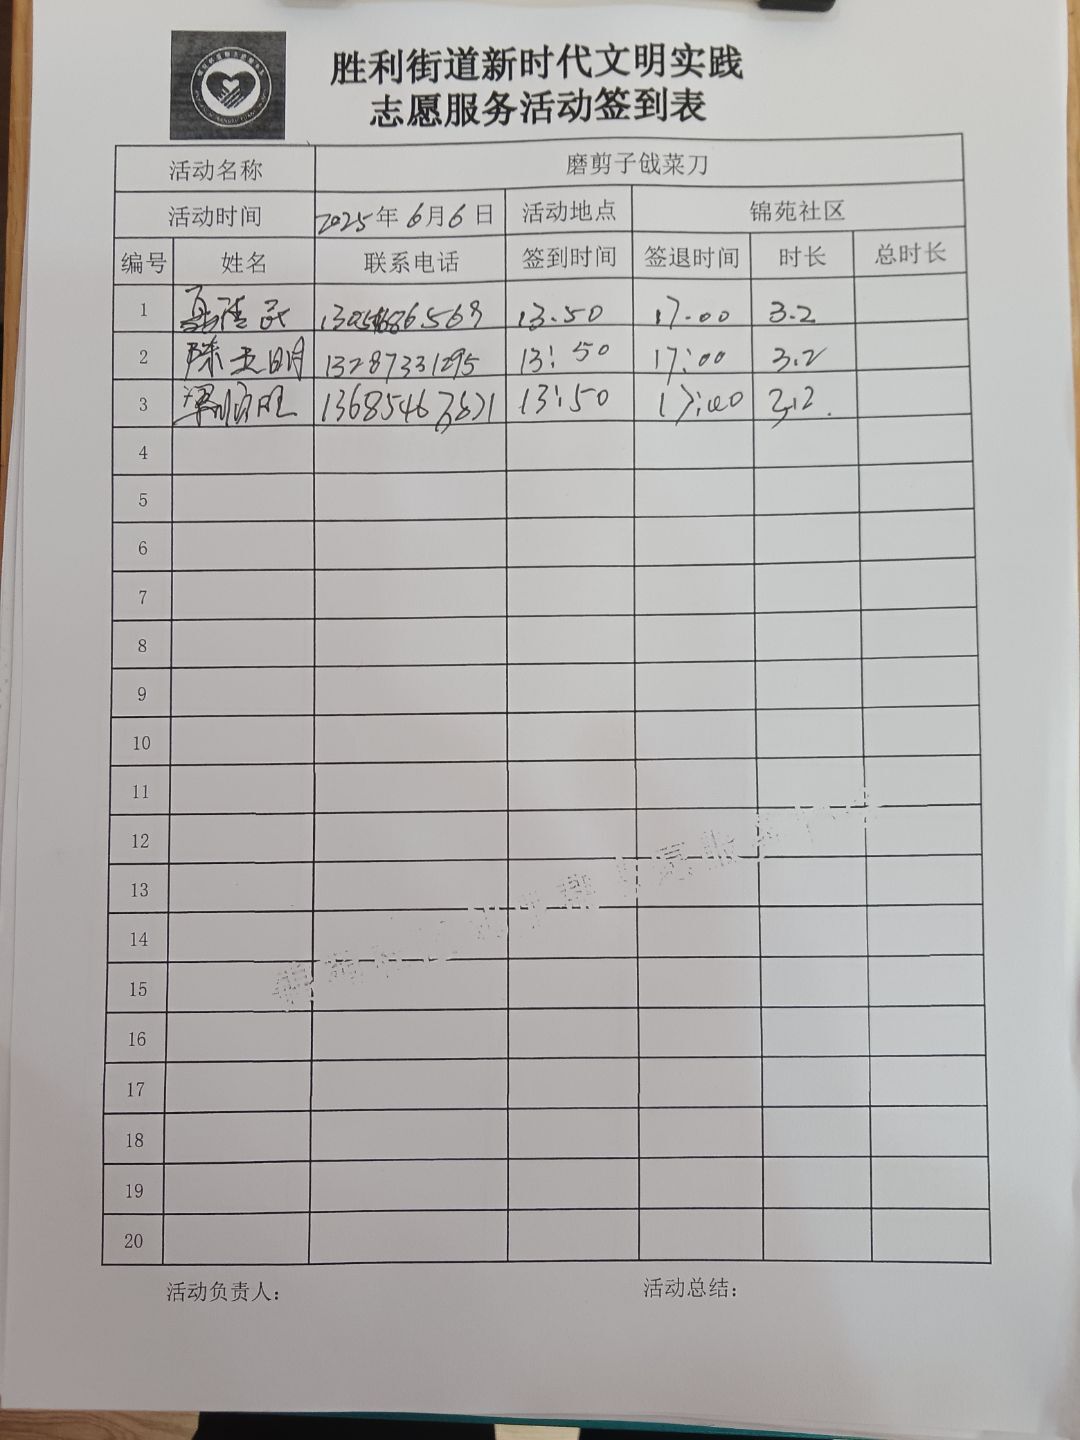 胜利街道新时代文明实践
志愿服务活动签到表
活动名称 磨剪子戗菜刀
活动时间 2025年6月6日 活动地点 锦苑社区
编号 姓名 联系电话 签到时间 签退时间 时长 总时长
1 13.50 17.00 3.2
2 陈玉明 13287331295 13:50 17:00 3.2
3 13:50 17:00 3.2.
4
5
6
7
8
9
10
11
12
13
14
15
16
17
18
19
20
活动负责人: 活动总结: